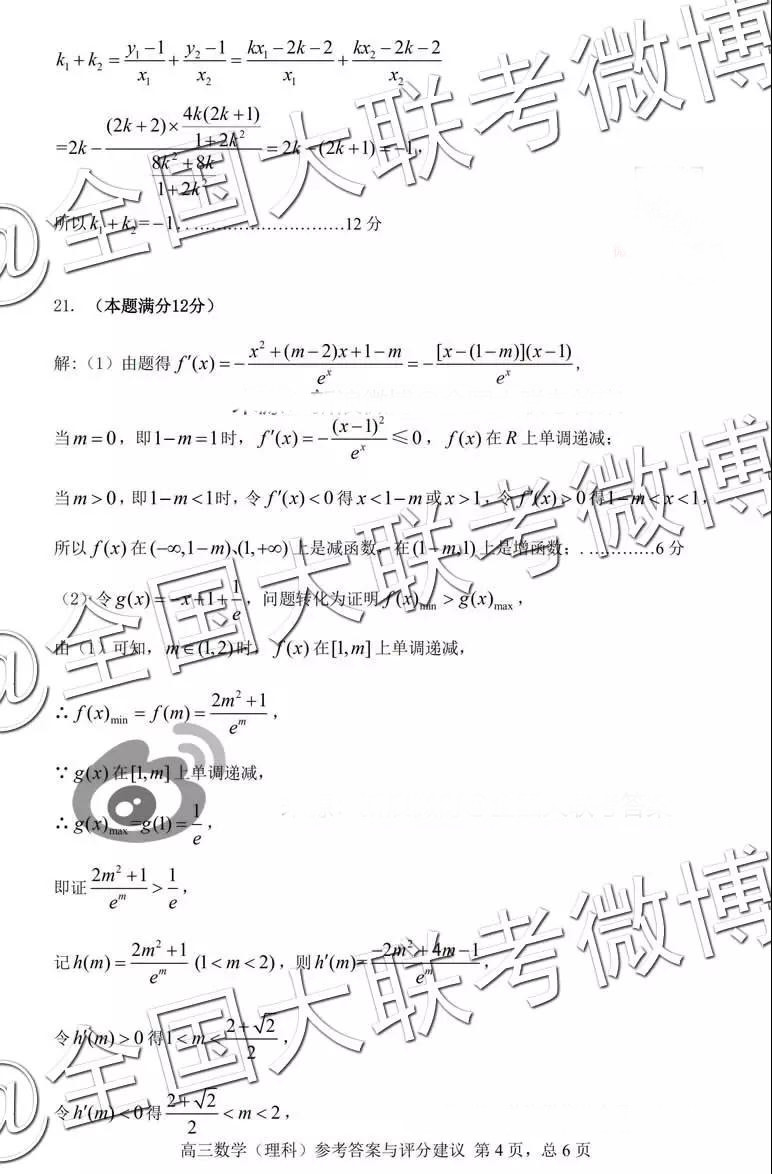 k₁ + k₂ = (y₁ − 1)/x₁ + (y₂ − 1)/x₂ = (kx₁ − 2k − 2)/x₁ + (kx₂ − 2k − 2)/x₂
=2k − ((2k + 2) × 4k(2k + 1)/(1 + 2k²))/((8k² + 8k)/(1 + 2k²)) = 2k − (2k + 1) = −1,
所以 k₁ + k₂ = −1. ………………………12 分
21. (本题满分12分)
解:(1)由题得 f′(x) = −(x² + (m − 2)x + 1 − m)/eˣ = −([x − (1 − m)](x − 1))/eˣ,
当 m = 0,即 1 − m = 1 时, f′(x) = −(x − 1)²/eˣ ≤ 0, f(x) 在 R 上单调递减;
当 m > 0,即 1 − m < 1 时,令 f′(x) < 0 得 x < 1 − m 或 x > 1,令 f′(x) > 0 得 1 − m < x < 1,
所以 f(x) 在 (−∞,1 − m)、(1,+∞) 上是减函数,在 (1 − m,1) 上是增函数;. …………6 分
(2)令 g(x) = −x + 1 + 1/e,问题转化为证明 f(x)min > g(x)max,
由(1)可知, m ∈ (1,2) 时, f(x) 在 [1,m] 上单调递减,
∴ f(x)min = f(m) = (2m² + 1)/eᵐ,
∵ g(x) 在 [1,m] 上单调递减,
∴ g(x)max = g(1) = 1/e,
即证 (2m² + 1)/eᵐ > 1/e,
记 h(m) = (2m² + 1)/eᵐ (1 < m < 2),则 h′(m) = (−2m² + 4m − 1)/eᵐ,
令 h′(m) > 0 得 1 < m < (2 + √2)/2,
令 h′(m) < 0 得 (2 + √2)/2 < m < 2,
高三数学(理科)参考答案与评分建议 第 4 页,总 6 页
@全国大联考微博
@全国大联考微博
@全国大联考微博